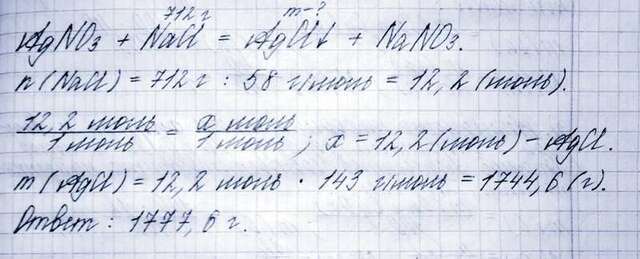 712 г m-?
AgNO3 + NaCl = AgCl↓ + NaNO3.
n(NaCl) = 712 г : 58 г/моль = 12,2 (моль).
12,2 моль / 1 моль = x моль / 1 моль ; x = 12,2 (моль) - AgCl.
m(AgCl) = 12,2 моль · 143 г/моль = 1744,6 (г).
Ответ: 1777,6 г.